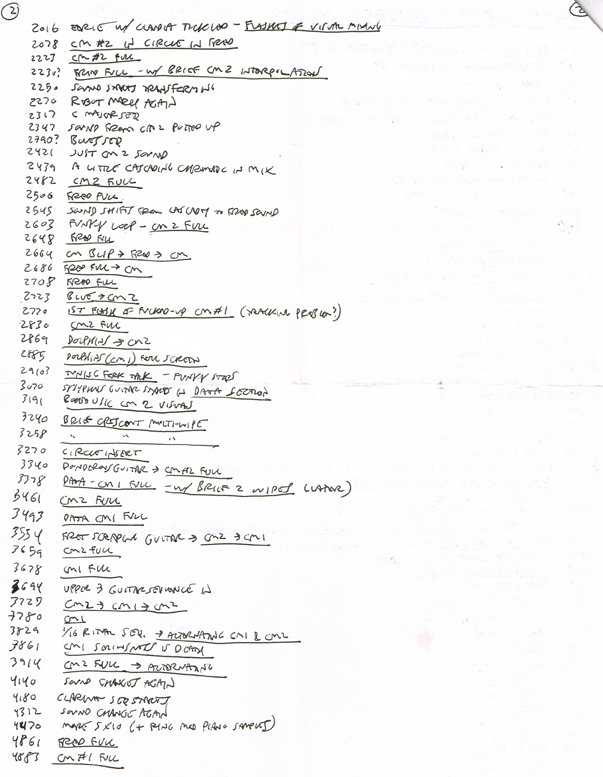 2
2016 EDDIE W/ CLAUDIA TICKLED - FLASHES OF VISUAL MIXING
2078 CM #2 IN CIRCLE IN FRED
2223 CM #2 FULL
2230? FRED FULL - W/ BRIEF CM2 INTERPOLATION
2250 SOUND STARTS TRANSFORMING
2270 ROBOT MARCH AGAIN
2317 C MAJOR SEQ
2347 SOUND FROM CM2 POTTED UP
2390? BLUES SEQ
2421 JUST CM2 SOUND
2439 A LITTLE CASCADING CHROMATIC IN MIX
2482 CM2 FULL
2506 FRED FULL
2545 SOUND SHIFTS FROM CASCADES TO FRED SOUND
2603 FUNKY LOOP - CM2 FULL
2648 FRED FULL
2664 CM BLIP → FRED → CM
2686 FRED FULL → CM
2708 FRED FULL
2723 BLUE → CM2
2770 1ST FLASH OF FUCKED-UP CM#1 (TRACKING PROBLEM?)
2830 CM2 FULL
2869 DOLPHINS → CM2
2885 DOLPHINS (CM1) FULL SCREEN
2910? TUNING FORK TALK - FUNKY STOPS
3070 SISYPHUS GUITAR STARTS IN DATA SECTION
3191 CM 2 VISUAL
3240 BRIEF CRESCENT MULTI-WIPE
3258 " " "
3270 CIRCLE INSERT
3340 PONDEROUS GUITAR → CM#2 FULL
3378 DATA - CM1 FULL - W/ BRIEF 2 WIPES (LATER)
3461 CM2 FULL
3493 DATA CM1 FULL
3554 FIRST SCRAPING GUITAR → CM2 → CM1
3659 CM2 FULL
3678 CM1 FULL
3694 UPPER 3 GUITAR SEQUENCE IN
3725 CM2 → CM1 → CM2
3780 CM1
3829 1/16 RITUAL SEQ. → ALTERNATING CM1 & CM2
3861 CM1 DEATH
3914 CM2 FULL → ALTERNATING
4140 SOUND CHANGES AGAIN
4180 CLARINET SEQ STARTS
4312 SOUND CHANGE AGAIN
4470 MORE 5X10 (+ RING MOD PIANO SAMPLES)
4861 FRED FULL
4883 CM #1 FULL